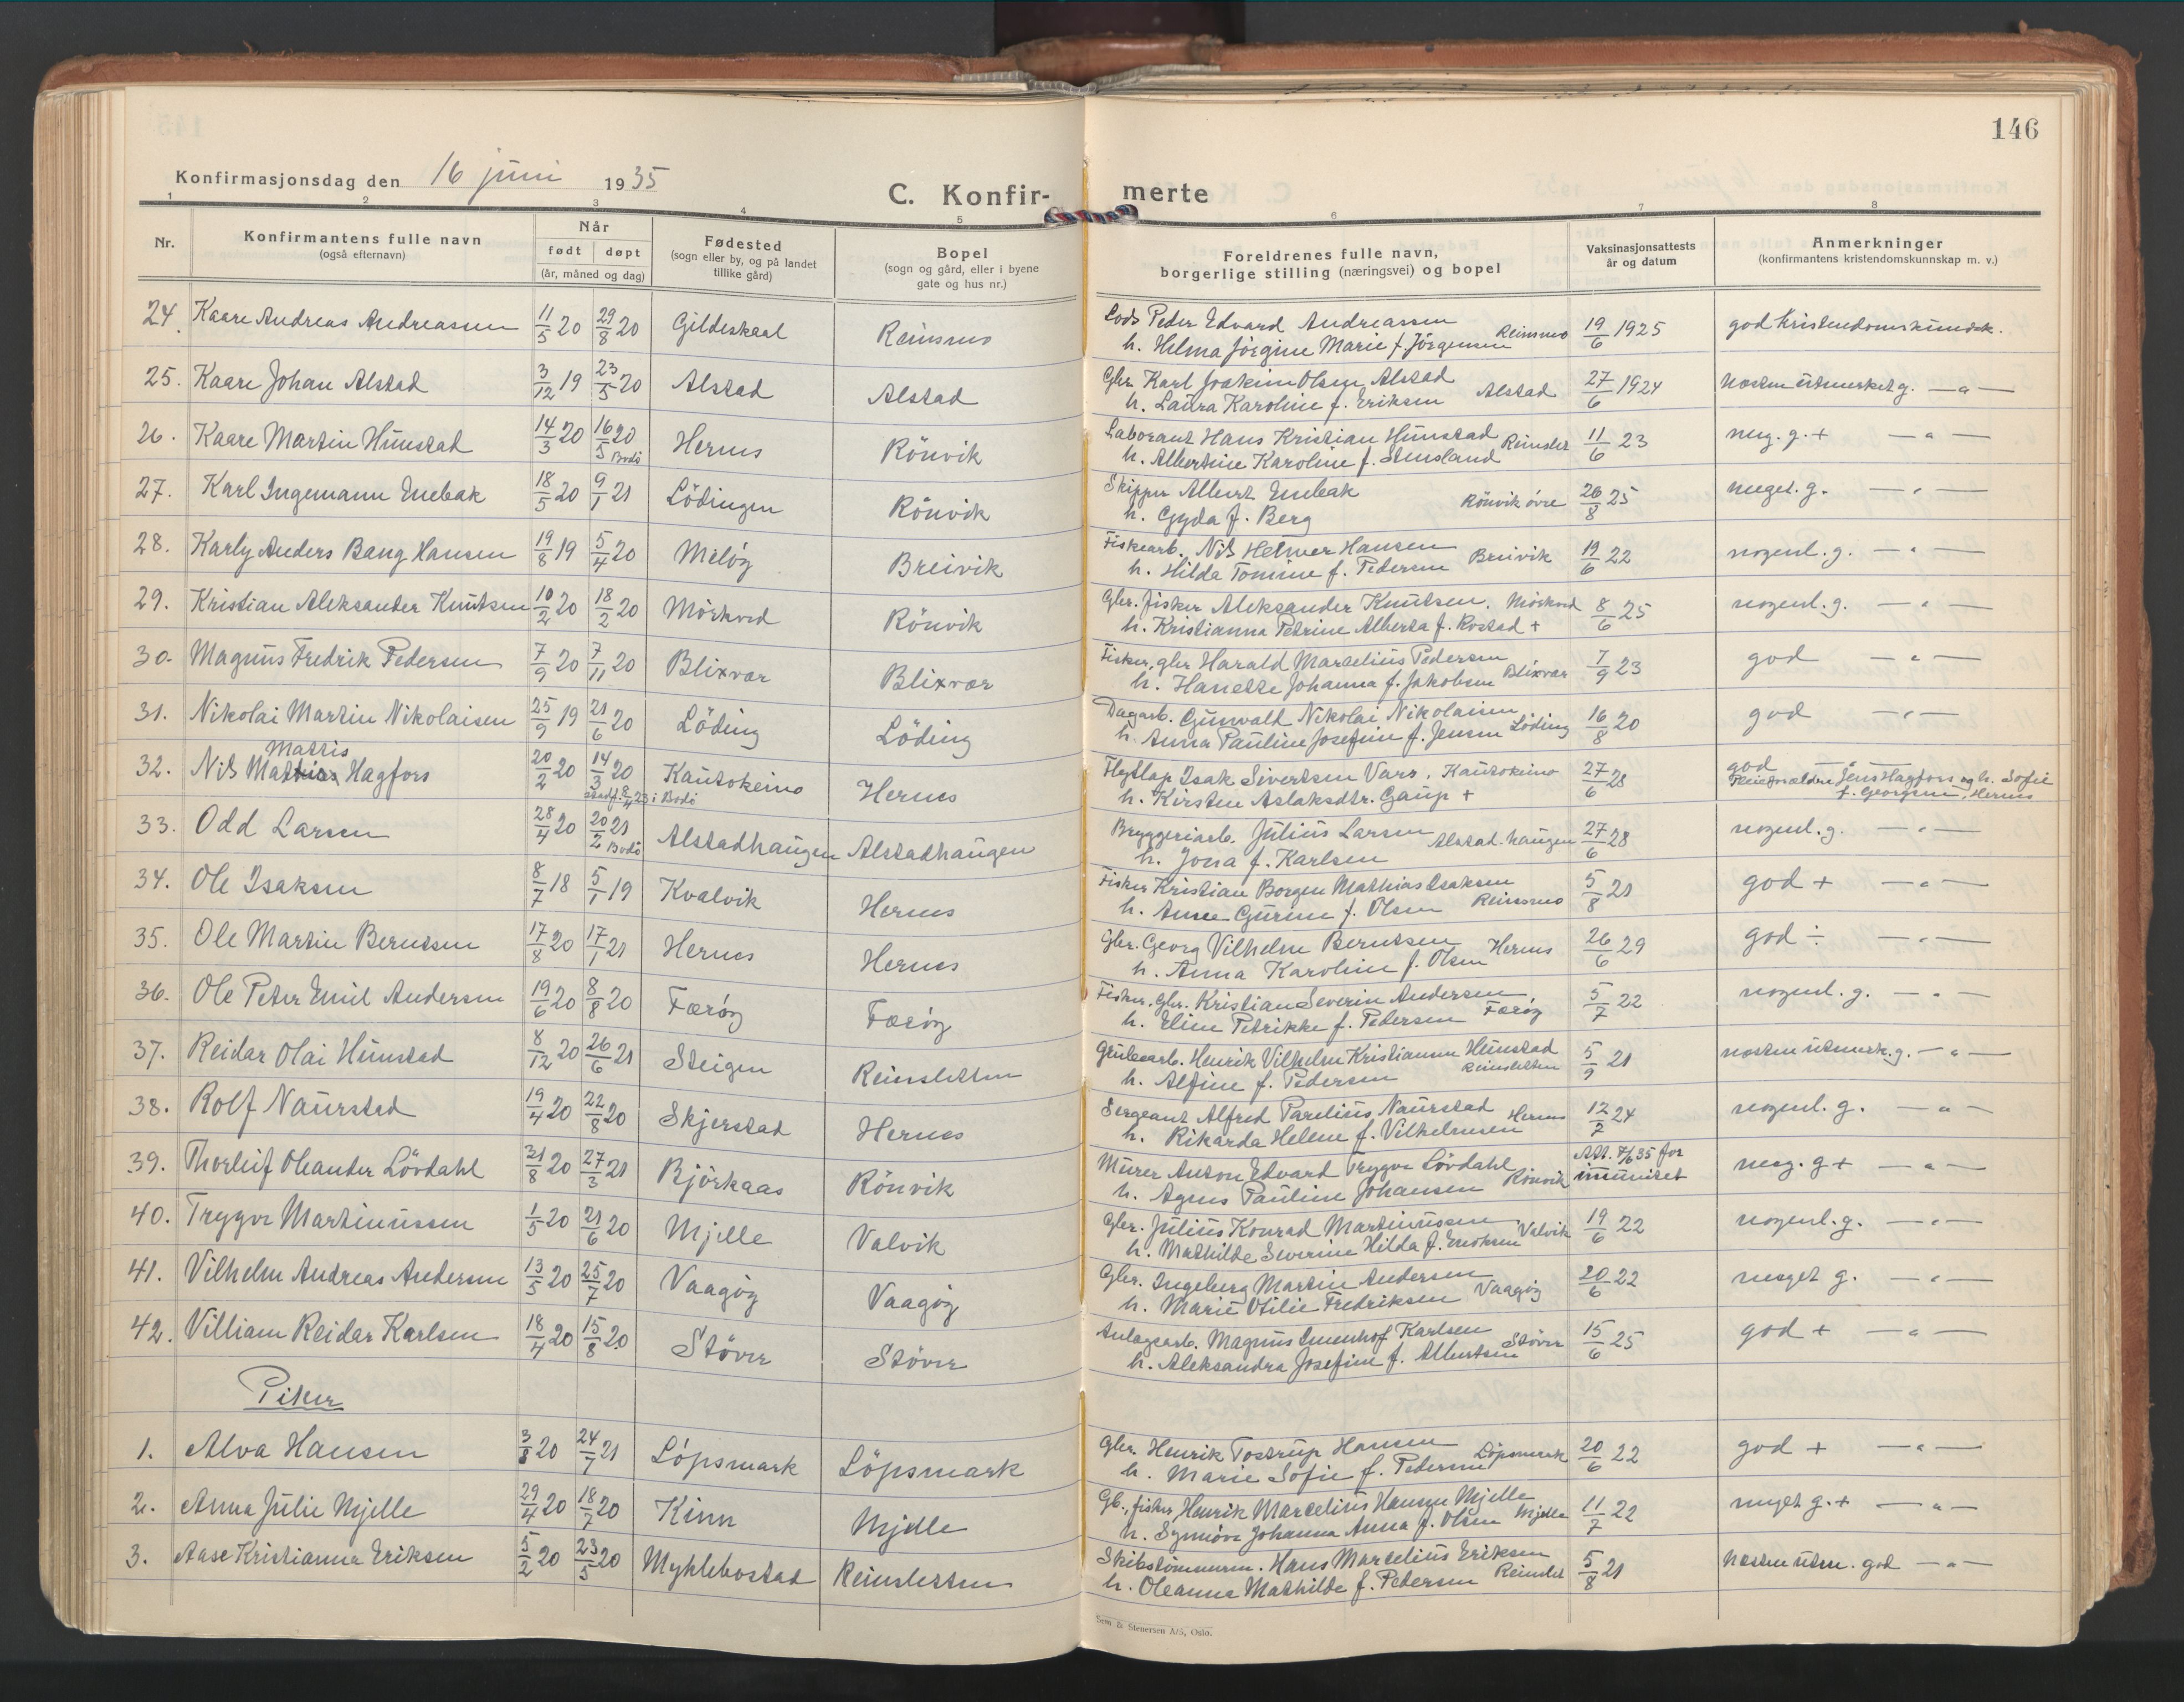 146
Konfirmasjonsdag den 16 juni 1935
C. Konfir- merte
1 2 3 4 5 6 7 8
Nr.
Konfirmantens fulle navn
(også efternavn)
Når
født døpt
(år, måned og dag)
Fødested
(sogn eller by, og på landet
tillike gård)
Bopel
(sogn og gård, eller i byene
gate og hus nr.)
Foreldrenes fulle navn,
borgerlige stilling (næringsvei) og bopel
Vaksinasjonsattests
år og datum
Anmerkninger
(konfirmantens kristendomskunnskap m. v.)
24. Kaare Andreas Andreassen 11/5 20 29/8 20 Gildeskaal Reinsmo Lods Peder Edvard Andreassen
h. Helma Jörgine Marie f. Jörgensen Reinsmo 19/6 1925 god kristendomskundsk.
25. Kaare Johan Alstad 3/12 19 23/5 20 Alstad Alstad Gbr. Karl Joakim Olsen Alstad
h. Laura Karoline f. Eriksen Alstad 27/6 1924 næsten utmerket g. — " —
26. Kaare Martin Hunstad 14/3 20 16/5 20 Bodö Hernes Rönvik Laborant Hans Kristian Hunstad
h. Albertine Karoline f. Stensland Reinslet 11/6 23 meg. g. + — " —
27. Karl Ingemann Enebak 18/5 20 9/1 21 Lödingen Rönvik Skipper Albert Enebak
h. Gyda f. Berg Rönvik övre 26/8 25 meget. g. — " —
28. Karly Anders Bang Hansen 19/8 19 5/4 20 Melöy Breivik Fiskearb. Nils Helmer Hansen
h. Hilda Tomine f. Pedersen Breivik 19/6 22 nogenl. g. — " —
29. Kristian Aleksander Knutsen 10/2 20 18/2 20 Mörkved Rönvik Gbr. fisker Aleksander Knutsen. Mörkved
h. Kristianna Petrine Alberta f. Rostad + 8/6 25 nogenl. g. — " —
30. Magnus Fredrik Pedersen 7/9 20 7/11 20 Blixvær Blixvær Fisker, gbr Harald Marselius Pedersen
h. Hanette Johanna f. Jakobsen Blixvær 7/9 23 god — " —
31. Nikolai Martin Nikolaisen 25/9 19 21/6 20 Löding Löding Dagarb. Gunvald Nikolai Nikolaisen
h. Anna Pauline Josefine f. Jensen Löding 16/8 20 god — " —
Mattis
32. Nils Hagfors 20/2 20 14/3 20 Kautokeino Hernes Flytlap Isak Sivertsen Vars. Kautokeino
stadf. 8/4 23 i Bodö
h. Kirsten Aslaksdtr. Gaup + 27/6 28 god — " —
Pleieforældre Jens Hagfors og h. Sofie
f. Georgsen, Hernes
33. Odd Larsen 28/4 20 20/2 21 Bodö Alstadhaugen Alstadhaugen Bryggeriarb. Julius Larsen
h. Jona f. Karlsen Alstad-haugen 27/6 28 nogenl. g. — " —
34. Ole Isaksen 8/7 18 5/1 19 Kvalvik Hernes Fisker Kristian Borgen Mathias Isaksen
h. Anne Gurine f. Olsen Reinsmo 5/8 21 god + — " —
35. Ole Martin Berntsen 17/8 20 17/1 21 Hernes Hernes Gbr. Georg Vilhelm Berntsen
h. Anna Karoline f. Olsen Hernes 26/6 29 god ÷ — " —
36. Ole Peter Emil Andersen 19/6 20 8/8 20 Færöy Færöy Fisker, gbr. Kristian Severin Andersen
h. Eline Petrikke f. Pedersen Færöy 5/7 22 nogenl. g. — " —
37. Reidar Olai Hunstad 8/12 20 26/6 21 Steigen Reinsletten Grubearb. Henrik Vilhelm Kristianson Hunstad
h. Alfine f. Pedersen Reinsletten 5/9 21 næsten utmerk. g. — " —
38. Rolf Naurstad 19/4 20 22/8 20 Skjerstad Hernes Sergeant Alfred Parelius Naurstad
h. Rikarda Helene f. Vilhelmsen Hernes 12/7 24 nogenl. g. — " —
39. Thorleif Oleander Lövdahl 31/8 20 27/3 21 Björkaas Rönvik Murer Anton Edvard Trygve Lövdahl
h. Agnes Pauline Johansen Rönvik Att. 7/6 35 for
immunitet meg. g + — " —
40. Trygve Martinussen 1/5 20 21/6 20 Mjelle Valvik Gbr. Julius Konrad Martinussen
h. Mathilde Severine Hilda f. Enoksen Valvik 19/6 22 nogenl. g. — " —
41. Vilhelm Andreas Andersen 13/5 20 25/7 20 Vaagöy Vaagöy Gbr. Ingeberg Martin Andersen
h. Marie Otilie Fredriksen Vaagöy 20/6 22 meget g. — " —
42. Villiam Reidar Karlsen 18/4 20 15/8 20 Stöver Stöver Anlægsarb. Magnus Karlsen
h. Aleksandra Josefine f. Albertsen Stöver 15/6 25 god + — " —
Piker
1. Alva Hansen 3/8 20 24/7 21 Löpsmark Löpsmark Gbr. Henrik Tostrup Hansen
h. Marie Sofie f. Pedersen Löpsmark 20/6 22 god + — " —
2. Anna Julie Mjelle 29/4 20 18/7 20 Kinn Mjelle Gb., fisker Henrik Marcelius Hansen Mjelle
h. Synnöve Johanna Anna f. Olsen Mjelle 11/7 22 meget g. + — " —
3. Aase Kristianna Eriksen 5/2 20 23/5 20 Myklebostad Reinsletten Skibstömmerm. Hans Marselius Eriksen
h. Oleanna Mathilde f. Pedersen Reinslet 5/8 21 Næsten utm. god — " —
Sem & Stenersen A/S, Oslo.